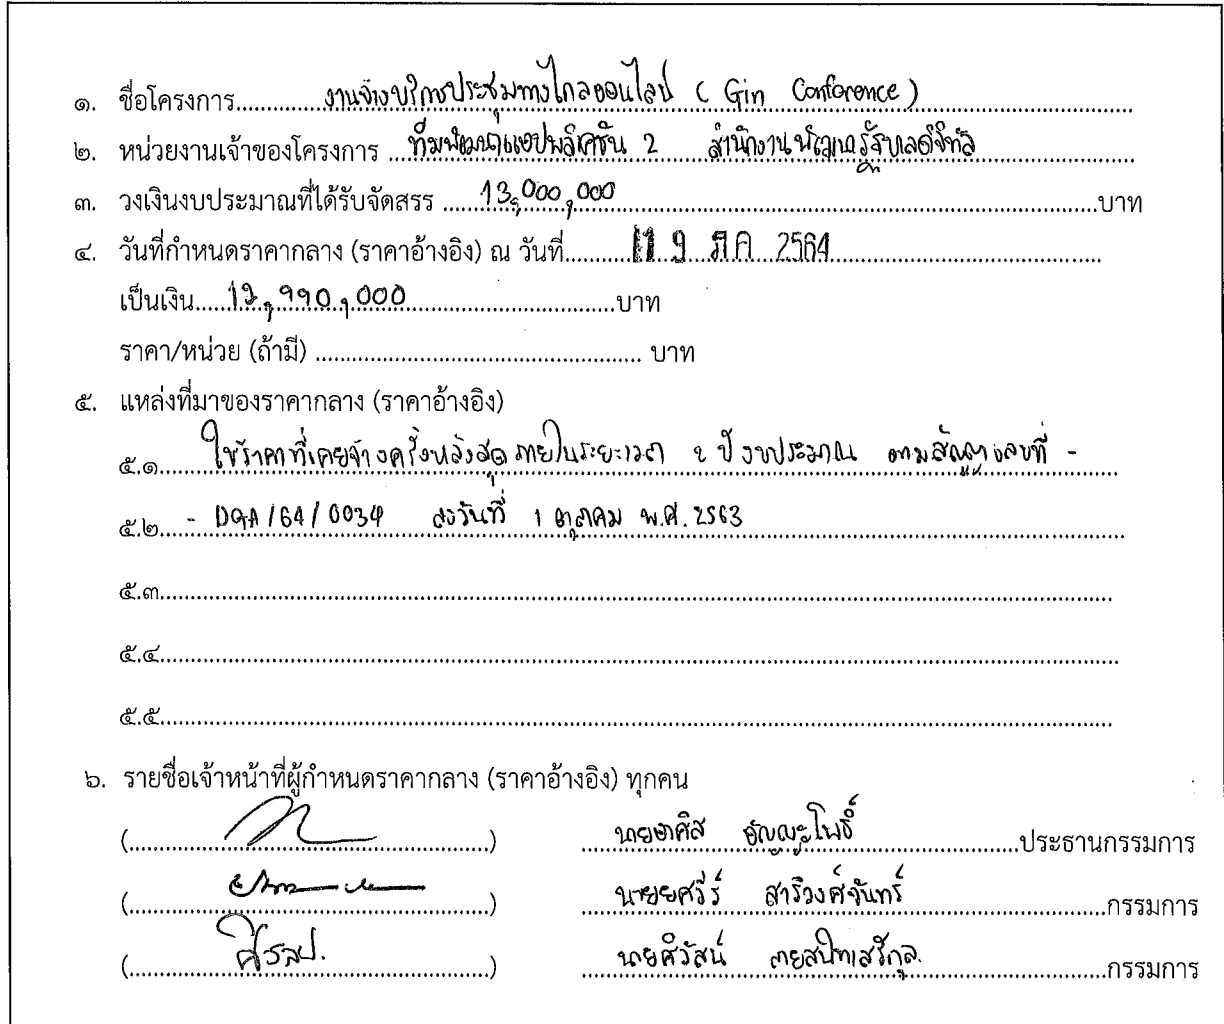 ๑. ชื่อโครงการ งานจ้างบริการประชุมทางไกลออนไลน์ ( Gin Conference )
๒. หน่วยงานเจ้าของโครงการ ทีมพัฒนาแอปพลิเคชัน 2 สำนักงานพัฒนารัฐบาลดิจิทัล
๓. วงเงินงบประมาณที่ได้รับจัดสรร 13,000,000 บาท
๔. วันที่กำหนดราคากลาง (ราคาอ้างอิง) ณ วันที่ 2564
เป็นเงิน 12,990,000 บาท
ราคา/หน่วย (ถ้ามี) บาท
๕. แหล่งที่มาของราคากลาง (ราคาอ้างอิง)
๕.๑ ใช้ราคาที่เคยจ้างครั้งหลังสุดภายในระยะเวลา ๒ ปีงบประมาณ ตามสัญญาเลขที่ -
๕.๒ - DGA/64/0034 ลงวันที่ 1 ตุลาคม พ.ศ. 2563
๕.๓
๕.๔
๕.๕
๖. รายชื่อเจ้าหน้าที่ผู้กำหนดราคากลาง (ราคาอ้างอิง) ทุกคน
( ) นายอาศิส อัญญะโพธิ์ ประธานกรรมการ
( ) นายยศวีร์ สาริวงศ์จันทร์ กรรมการ
( ) นายศิวัสน์ กรรมการ